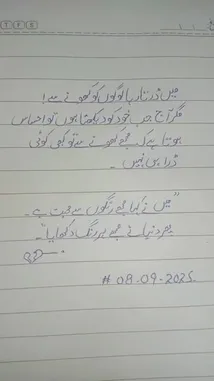 T F S
میں ڈرتا رہا لوگوں کو کھونے سے!
مگر آج جب خود کو دیکھتا ہوں تو احساس
ہوتا ہے کہ مجھے کھونے سے تو کبھی کوئی
ڈرا ہی نہیں -
"میں نے کہا مجھے رنگوں سے محبت ہے -
پھر دنیا نے مجھے ہر رنگ دکھایا" -
# 08-09-2025.